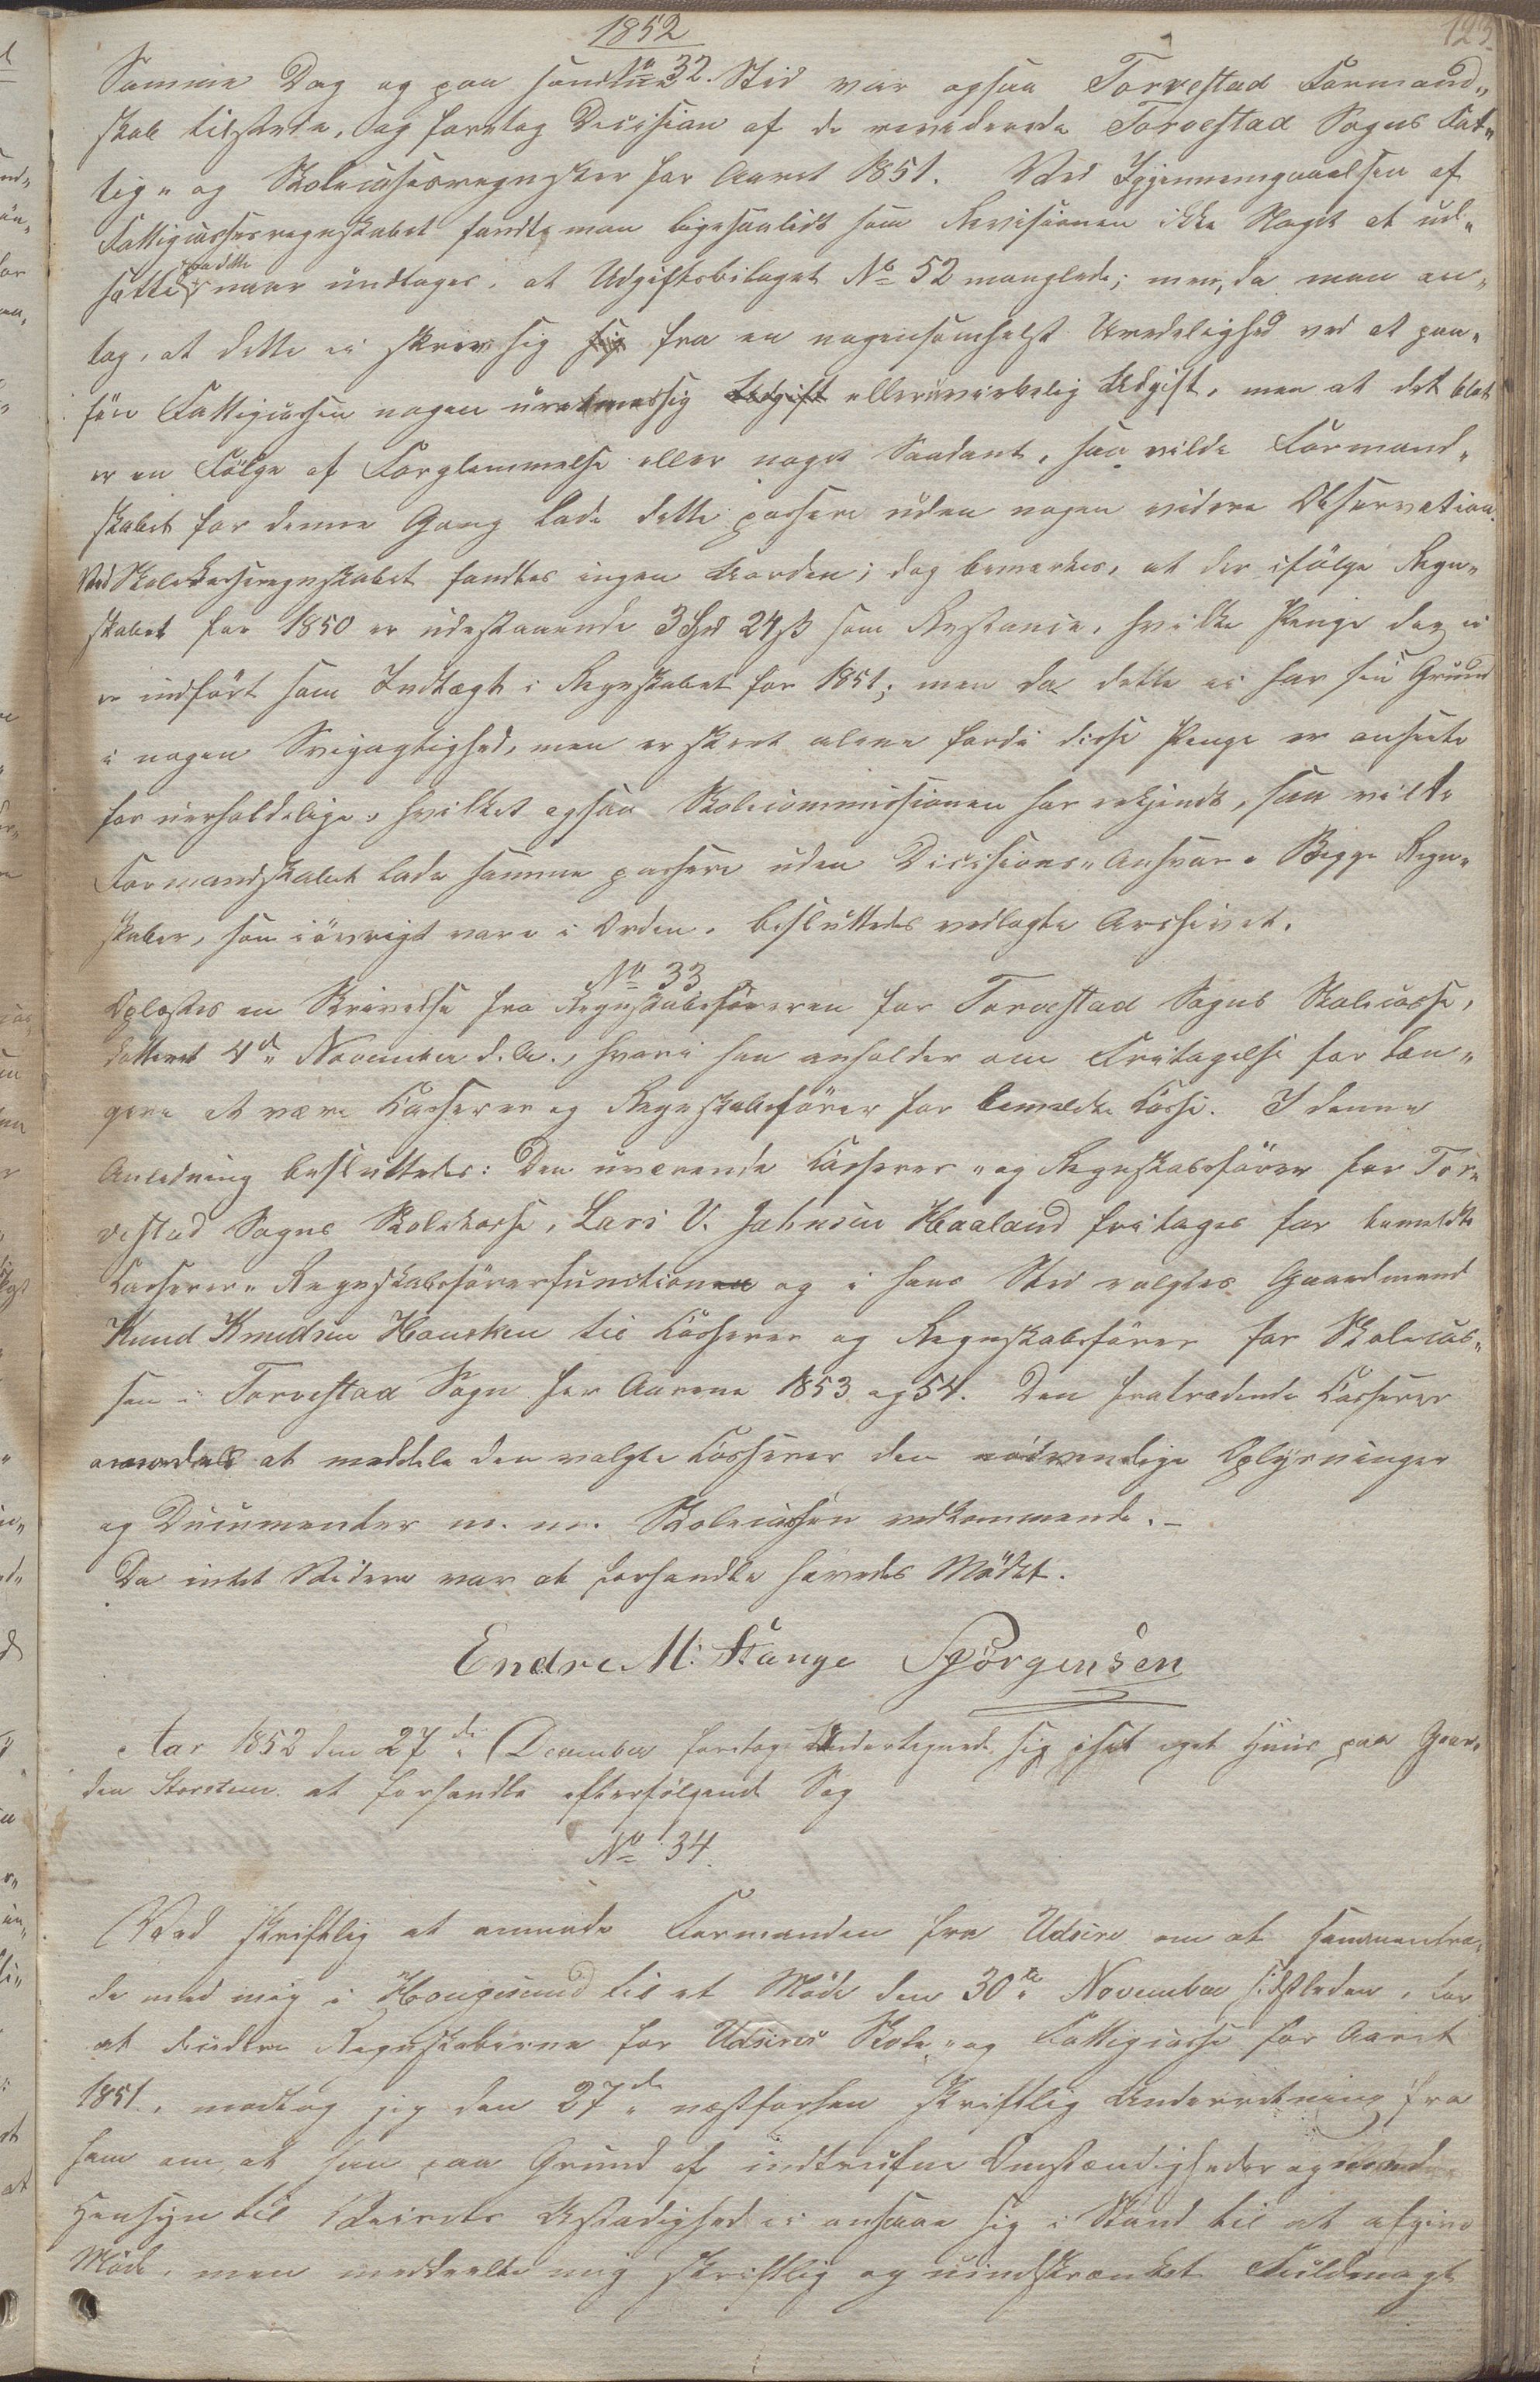 1852
123
No 32.
Samme Dag og paa samme Sted var ogsaa Torvestad Formand„
skab tilstede, og foretog Decision af de reviderede Torvestad Sogns Fat„
tig„ og Skolecasseregnskaber for Aaret 1851. Ved Igjennemgaaelsen af
Fattigcasseregnskabet fandt man ligesaalidt som Revisionen ikke Noget at ud„
sætte, naar undtages, at Udgiftsbilaget No 52 manglede; men, da man an„
tog, at dette ei skrev sig fra en nogensomhelst Uredelighed ved at paa„
føre Fattigcassen nogen uretmessig Udgift eller uvirkelig Udgift, men at det blot
er en Følge af Forglemmelse eller noget Saadant, saa vilde Formand„
skabet for denne Gang lade dette passere uden nogen videre Observation.
Ved Skolekasseregnskabet fandtes ingen Uorden; dog bemærkes, at der ifølge Regn„
skabet for 1850 er udestaaende 3 Spd 24 ß som Restance, hvilke Penge dog ei
er indført som Indtægt i Regnskabet for 1851; men da dette ei har sin Grund
i nogen Svigagtighed, men er skeet alene fordi disse Penge er ansete
for uerholdelige, hvilket ogsaa Skolecommissionen har erkjendt, saa vilde
Formandskabet lade samme passere uden Decisions„Ansvar. Begge Regn„
skaber, som iøvrigt vare i Orden, besluttedes vedlagte Archivet.
No 33
Oplæstes en Skrivelse fra Regnskabsføreren for Torvestad Sogns Skolecasse,
datteret 4de November d. A., hvori han anholder om Fritagelse for læn„
gere at være Casserer og Regnskabsfører for bemeldte Casse. I denne
Anledning besluttedes: Den nuværende Casserer „og Regnskabsfører for Tor„
vestad Sogns Skolekasse, Lars V. Johnsen Haaland fritages for bemeldte
Casserer„ Regnskabsførerfunction og i hans Sted valgtes Gaardmand
Knud Knudsen Hausken til Casserer og Regnskabsfører for Skolecas„
sen i Torvestad Sogn for Aarene 1853 og 54. Den fratrædende Casserer
anmodes at meddele den valgte Casserer den nødvendige Oplysninger
og Documenter m. m. Skolecassen vedkommende. –
Da intet Videre var at forhandle hævedes Mødet.
Endre M: Stange Jørgensen
Aar 1852 den 27de December foretog Undertegnede sig i sit eget Huus paa Gaar„
den Storsteen at forhandle efterfølgende Sag
No 34.
Ved skriftlig at anmode Formanden fra Udsire om at sammentræ„
de med mig i Hougesund til et Møde den 30te November sidstleden, for
at decidere Regnskaberne for Udsires Skole„ og Fattigcasse for Aaret
1851, modtog jeg den 27de næstforhen skriftlig Underretning fra
ham om, at han paa Grund af indtrufne Omstændigheder og med
Hensyn til Veirets Ustadighed ei ansaae sig i Stand til at afgive
Møde, men meddeelte mig skriftlig og uindskrænket Fuldmagt